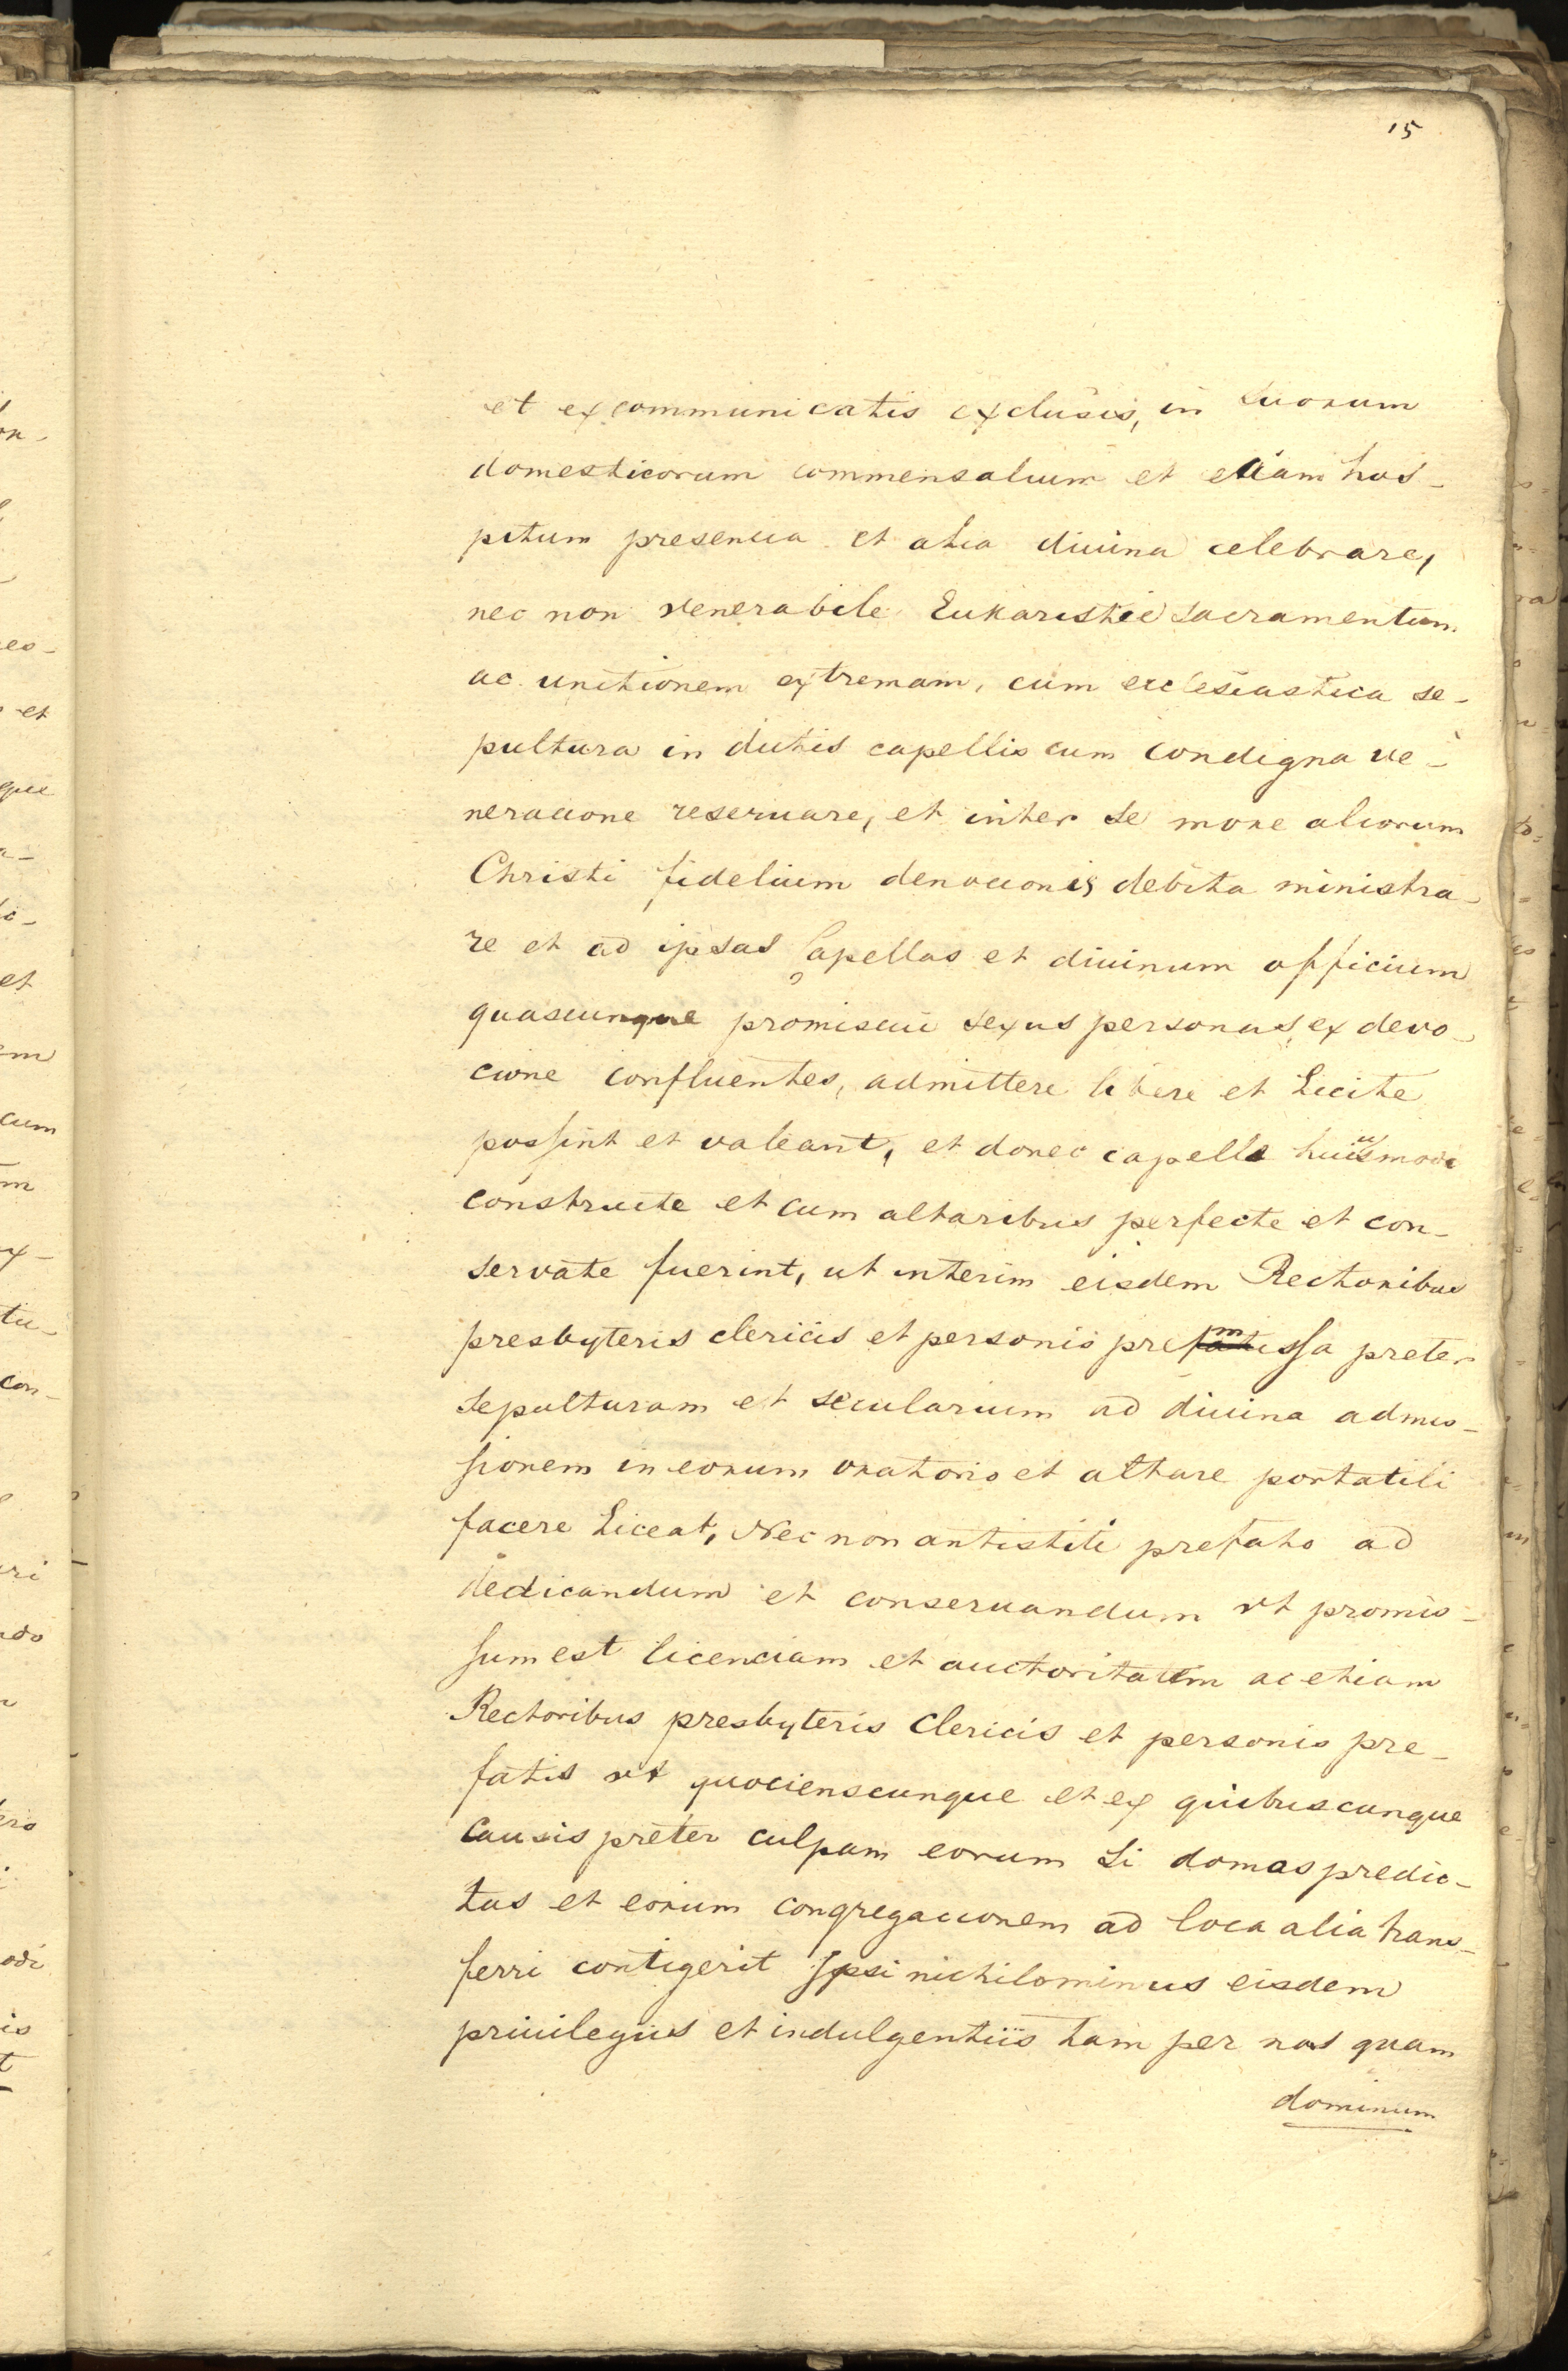 15
et excommunicatis exclusis, in suorum
domesticorum commensalium et etiam hos-
pitum presencia et alia diuina celebrare,
nec non venerabile Eukaristie sacramentum
ac unctionem extremam, cum ecclesiastica se-
pultura in dictis capellis cum condigna ve-
neracione reseruare, et inter se more aliorum
Christi fidelium deuocionis debita ministra-
re et ad ipsas Capellas et diuinum officium
quascunque promiscui sexus personas, ex devo-
cione confluentes, admittere libere et Licite
possint et valeant, et donec capelle huiusmodi
constructe et cum altaribus perfecte et con-
servate fuerint, ut interim eisdem Rectoribus
presbyteris clericis et personis premissa preter
sepulturam et secularium ad diuina admis-
sionem in eorum oratorio et altare portatili
facere Liceat, Nec non antistiti prefato ad
dedicandum et conseruandum vt promis-
sum est licenciam et auctoritatem ac etiam
Rectoribus presbyteris Clericis et personis pre-
fatis vt quocienscunque et ex quibuscunque
Causis preter culpam eorum si domos predic-
tas et eorum congregacionem ad loca alia trans-
ferri contigerit Ipsi nichilominus eisdem
priuilegiis et indulgentiis tam per nos quam
dominum